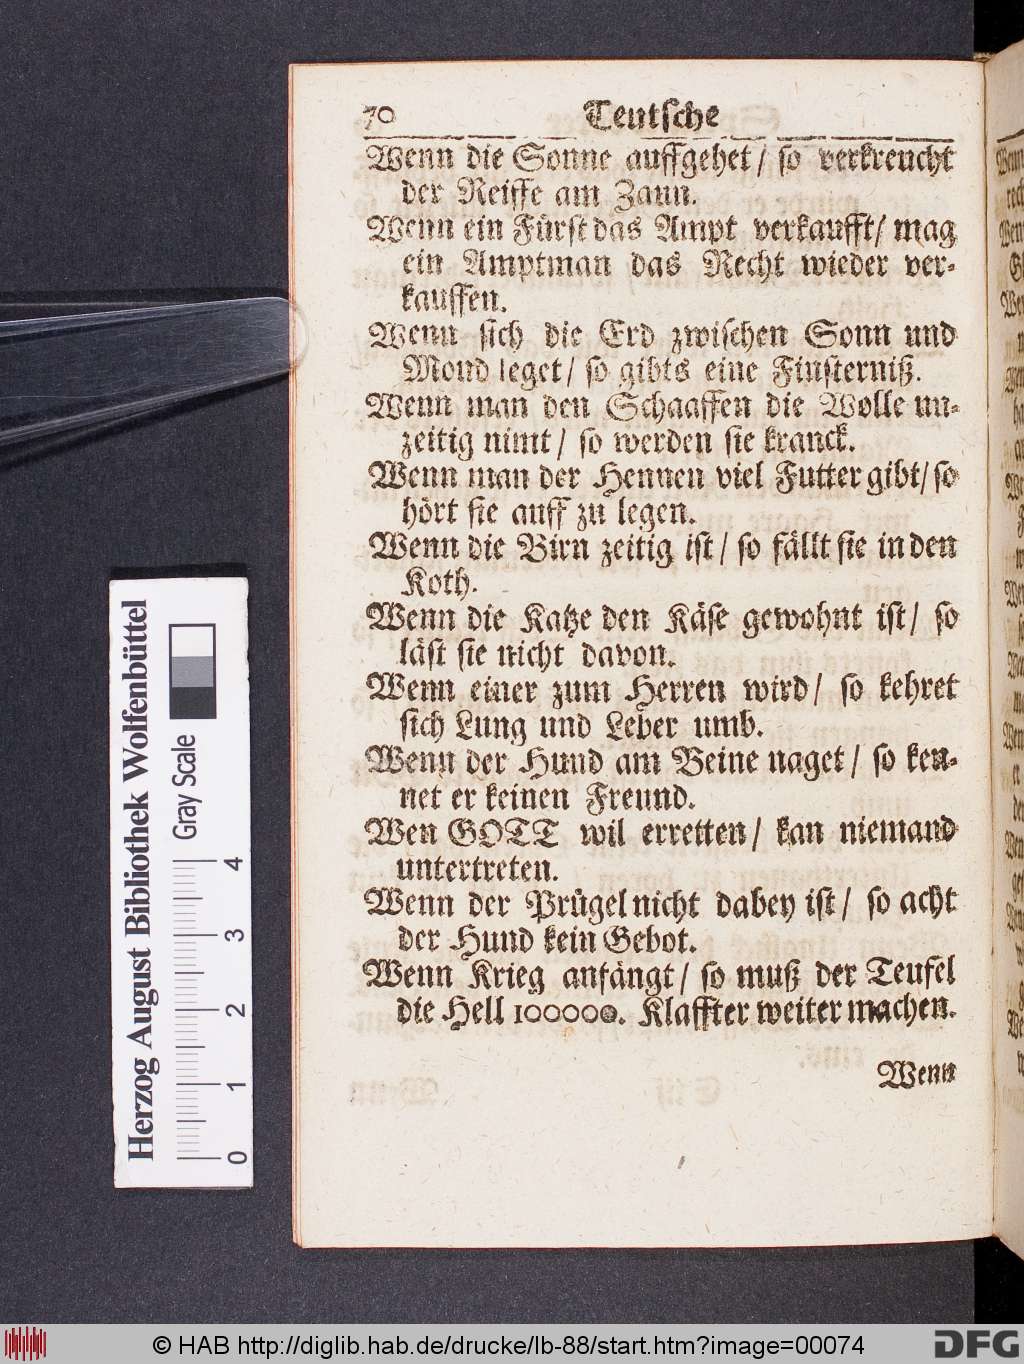 70 Teutsche
Wenn die Sonne auffgehet / so verkreucht
der Reiffe am Zaun.
Wenn ein Fürst das Ampt verkaufft / mag
ein Amptman das Recht wieder ver-
kauffen.
Wenn sich die Erd zwischen Sonn und
Mond leget / so gibts eine Finsterniß.
Wenn man den Schaaffen die Wolle un-
zeitig nimt / so werden sie kranck.
Wenn man der Hennen viel Futter gibt / so
hört sie auff zu legen.
Wenn die Birn zeitig ist / so fällt sie in den
Koth.
Wenn die Katze den Käse gewohnt ist / so
läst sie nicht davon.
Wenn einer zum Herren wird / so kehret
sich Lung und Leber umb.
Wenn der Hund am Beine naget / so ken-
net er keinen Freund.
Wen GOTT wil erretten / kan niemand
untertreten.
Wenn der Prügel nicht dabey ist / so acht
der Hund kein Gebot.
Wenn Krieg anfängt / so muß der Teufel
die Hell 100000. Klaffter weiter machen.
Wenn
Herzog August Bibliothek Wolfenbüttel
Gray Scale
0 1 2 3 4
© HAB http://diglib.hab.de/drucke/lb-88/start.htm?image=00074
DFG